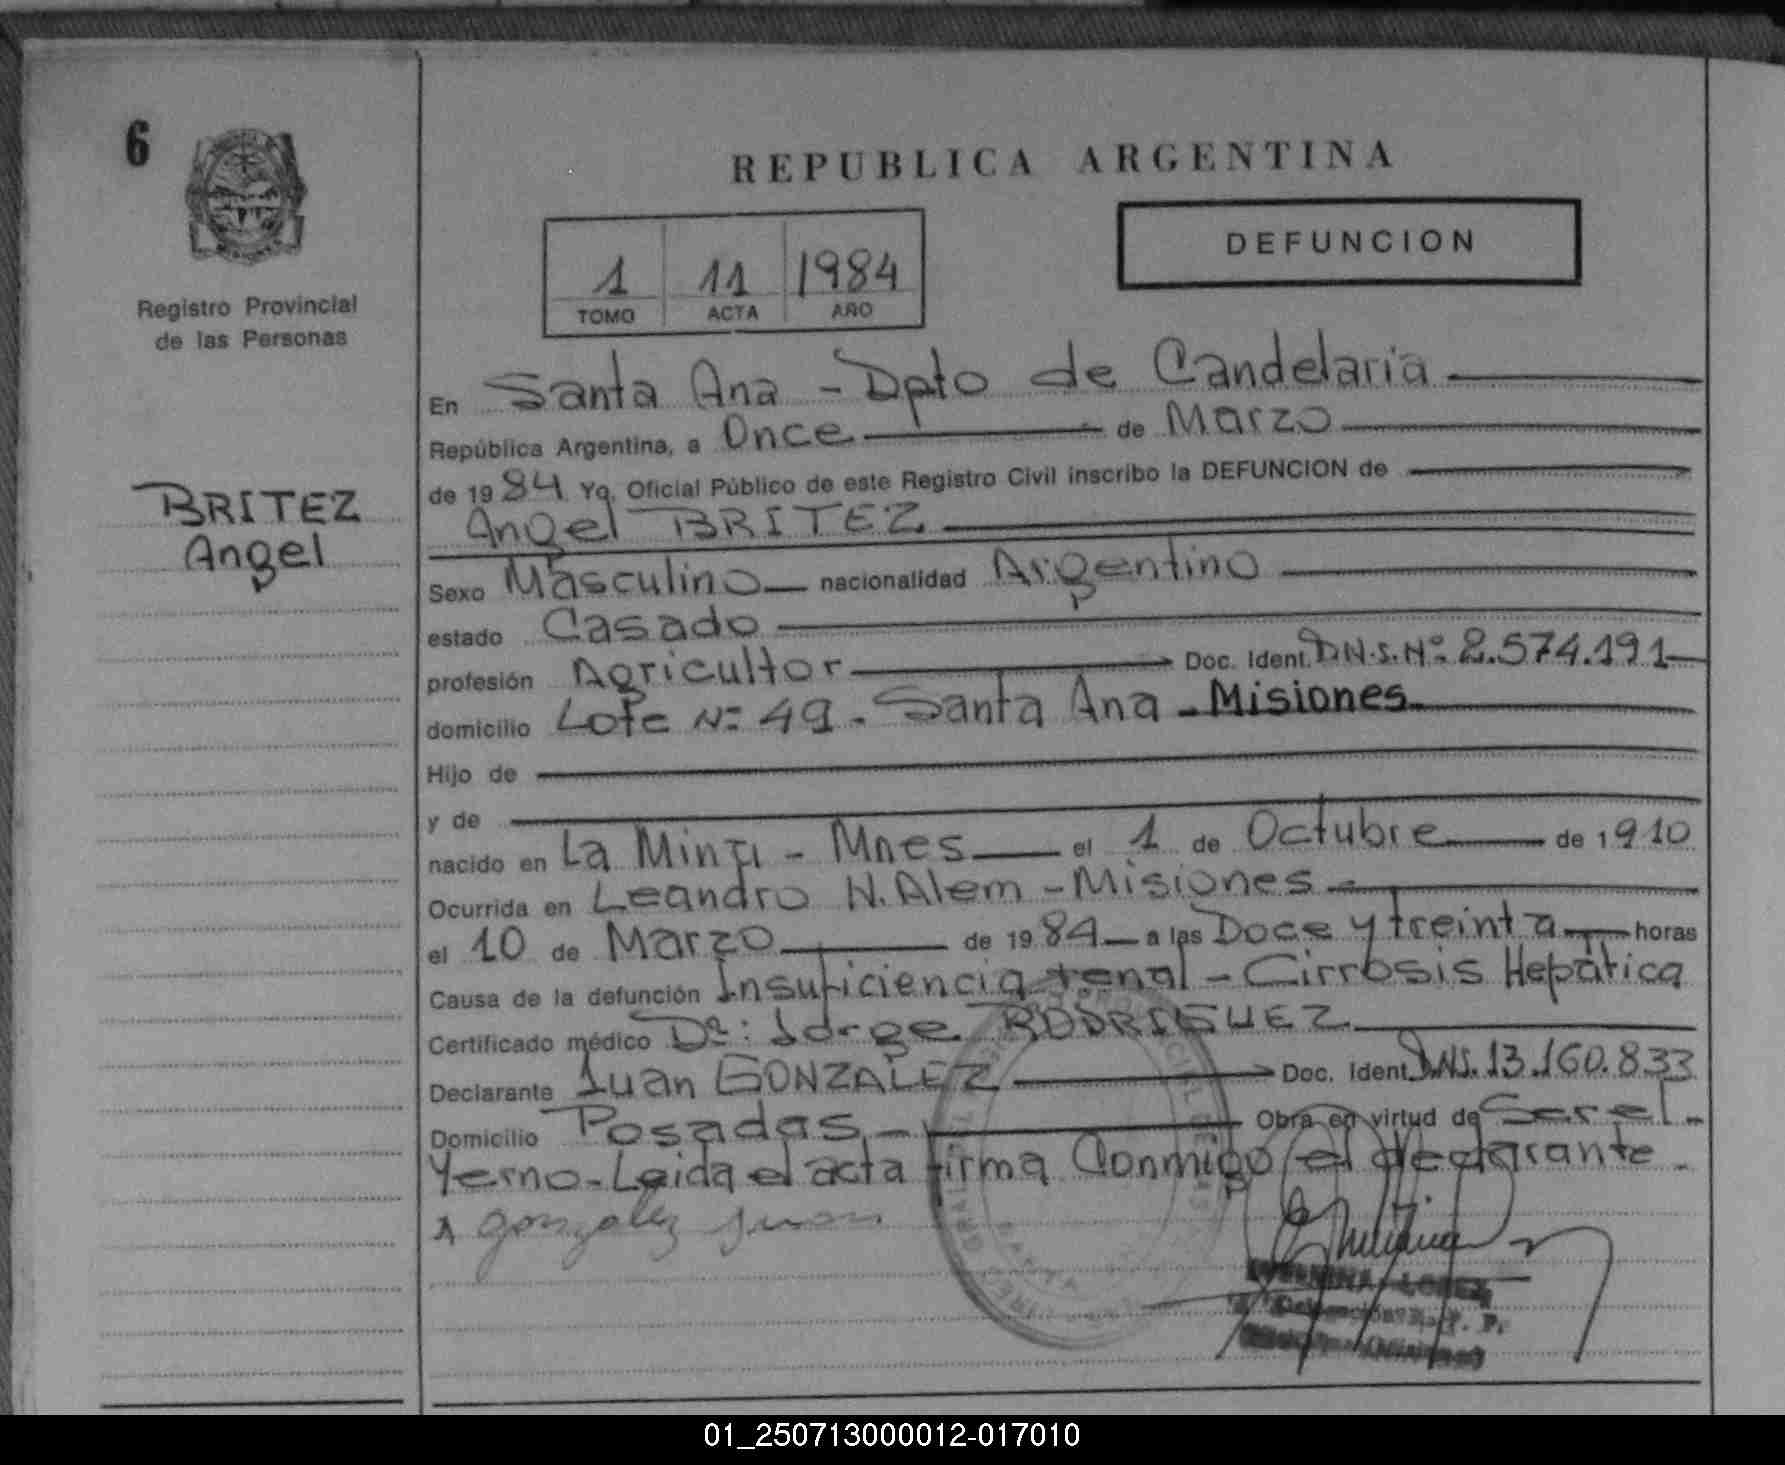 6
REPUBLICA ARGENTINA
DEFUNCION
1 11 1984
TOMO ACTA AÑO
Registro Provincial
de las Personas
BRITEZ
Angel
En Santa Ana - Dpto de Candelaria
República Argentina, a Once de Marzo
de 1984 Yo, Oficial Público de este Registro Civil inscribo la DEFUNCION de
Angel BRITEZ
Sexo Masculino nacionalidad Argentino
estado Casado
profesión Agricultor Doc. Ident. D.N.I. Nº 2.574.191
domicilio Lote Nº 49 - Santa Ana - Misiones
Hijo de
y de
nacido en La Mina - Mnes el 1 de Octubre de 1910
Ocurrida en Leandro N. Alem - Misiones
el 10 de Marzo de 1984 a las Doce y treinta horas
Causa de la defunción Insuficiencia renal - Cirrosis Hepática
Certificado médico Dr: Jorge RODRIGUEZ
Declarante Juan GONZALEZ Doc. Ident. D.N.I. 13.160.833
Domicilio Posadas - Obra en virtud de Ser el -
Yerno - Leida el acta firma Conmigo el declarante -
gonzalez juan
LOPEZ
01_250713000012-017010